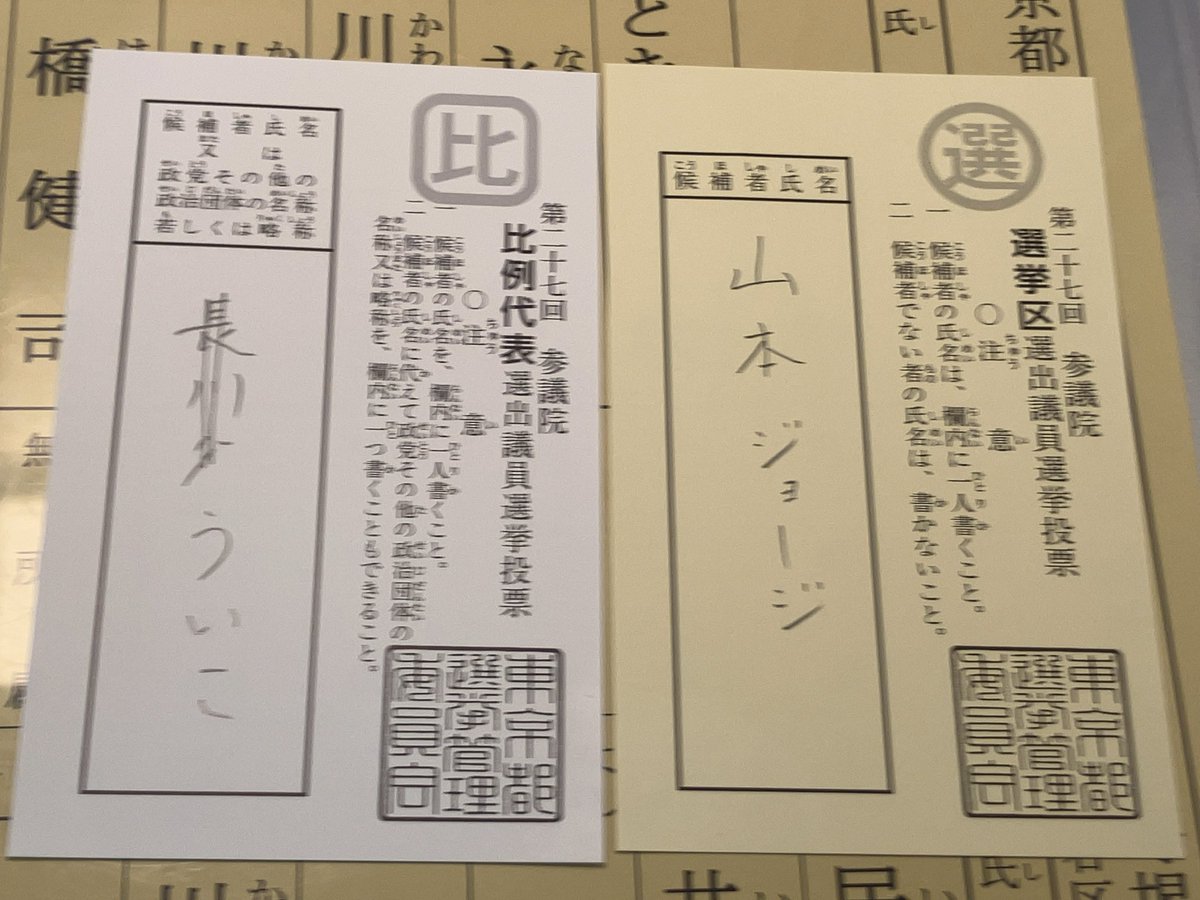 選
第二十七回 参議院
選挙区選出議員選挙投票
〇注意
一 候補者の氏名は、欄内に一人書くこと。
二 候補者でない者の氏名は、書かないこと。
候補者氏名
山本ジョージ
東京都
選挙管理
委員会
比
第二十七回 参議院
比例代表選出議員選挙投票
〇注意
一 候補者の氏名を、欄内に一人書くこと。
二 候補者の氏名に代えて政党その他の政治団体の
名称又は略称を、欄内に一つ書くこともできること。
候補者氏名
又は
政党その他の
政治団体の名称
若しくは略称
うい こ
東京都
選挙管理
委員会
京都
氏 し
川 かわ
橋
健
司
無